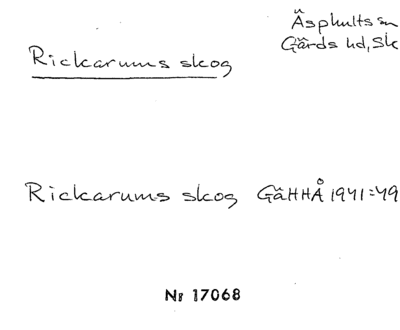 Äsphults sn
Gärds hd, Sk
Rickarums skog
Rickarums skog GäHHÅ 1941:49
Nr 17068